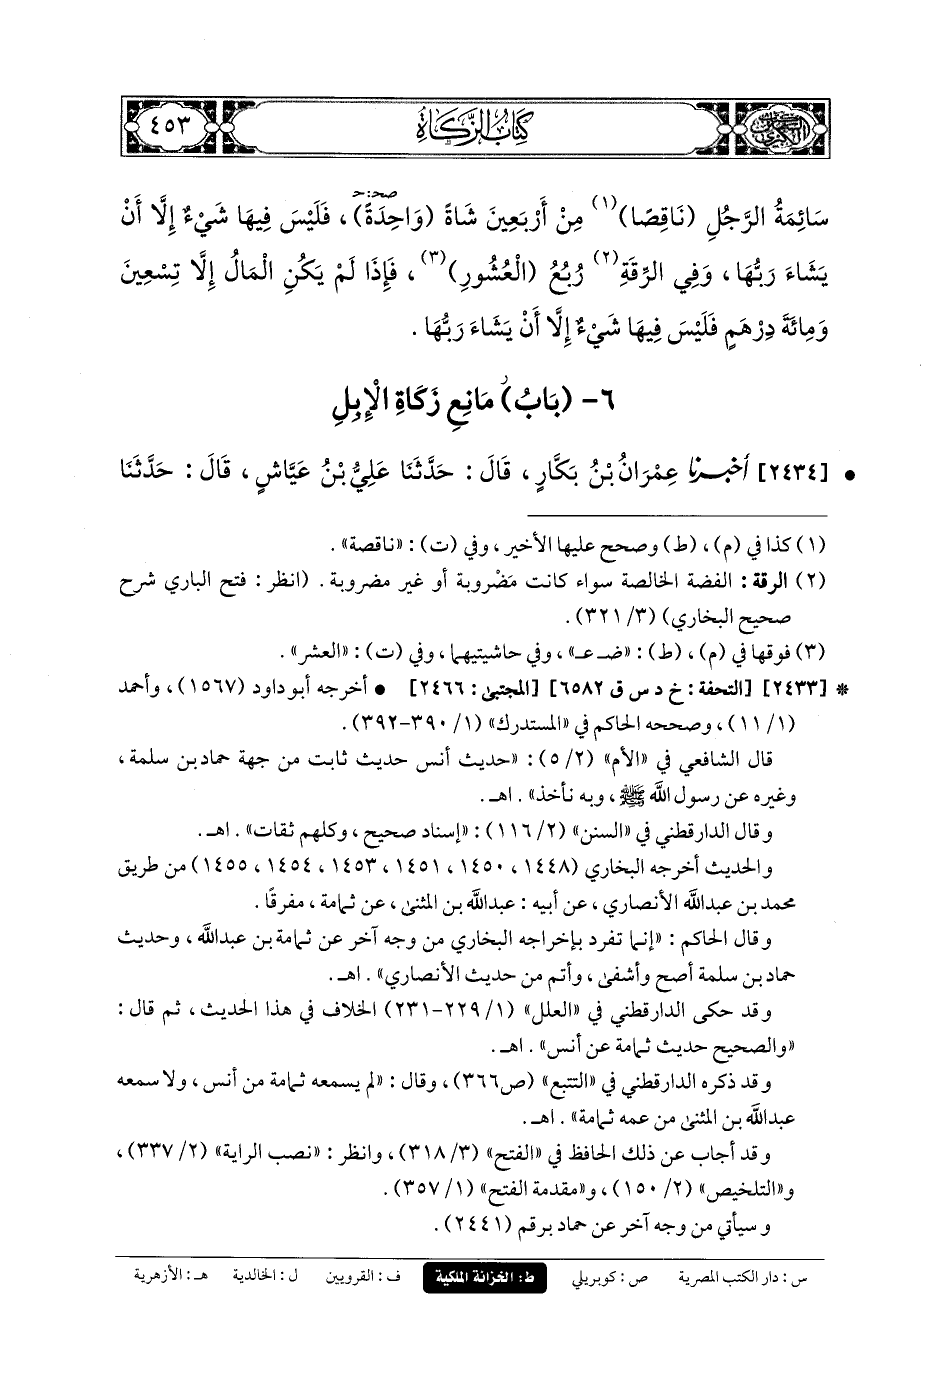 كتاب الزكاة
٤٥٣
سَائِمَةُ الرَّجُلِ (نَاقِصًا)(١) مِنْ أَرْبَعِينَ شَاةً (وَاحِدَةً)، فَلَيْسَ فِيهَا شَيْءٌ إِلَّا أَنْ
يَشَاءَ رَبُّهَا، وَفِي الرِّقَةِ(٢) رُبُعُ (الْعُشُورِ)(٣)، فَإِذَا لَمْ يَكُنِ الْمَالُ إِلَّا تِسْعِينَ
وَمِائَةَ دِرْهَمٍ فَلَيْسَ فِيهَا شَيْءٌ إِلَّا أَنْ يَشَاءَ رَبُّهَا.
٦- (بَابُ) مَانِعِ زَكَاةِ الْإِبِلِ
• [٢٤٣٤] أخبرنا عِمْرَانُ بْنُ بَكَّارٍ، قَالَ: حَدَّثَنَا عَلِيُّ بْنُ عَيَّاشٍ، قَالَ: حَدَّثَنَا
(١) كذا في (م)، (ط) وصحح عليها الأخير، وفي (ت): «ناقصة».
(٢) الرقة: الفضة الخالصة سواء كانت مَضْروبة أو غير مضروبة. (انظر: فتح الباري شرح
صحيح البخاري) (٣/ ٣٢١).
(٣) فوقها في (م)، (ط): «ضـ عـ»، وفي حاشيتيهما، وفي (ت): «العشر».
* [٢٤٣٣] [التحفة: خ د س ق ٦٥٨٢] [المجتبى: ٢٤٦٦] • أخرجه أبو داود (١٥٦٧)، وأحمد
(١/ ١١)، وصححه الحاكم في «المستدرك» (١/ ٣٩٠-٣٩٢).
قال الشافعي في «الأم» (٢/ ٥): «حديث أنس حديث ثابت من جهة حماد بن سلمة،
وغيره عن رسول الله ﷺ، وبه نأخذ». اهـ.
وقال الدارقطني في «السنن» (٢/ ١١٦): «إسناد صحيح، وكلهم ثقات». اهـ.
والحديث أخرجه البخاري (١٤٤٨، ١٤٥٠، ١٤٥١، ١٤٥٣، ١٤٥٤، ١٤٥٥) من طريق
محمد بن عبدالله الأنصاري، عن أبيه: عبدالله بن المثنى، عن ثمامة، مفرقًا.
وقال الحاكم: «إنما تفرد بإخراجه البخاري من وجه آخر عن ثمامة بن عبدالله، وحديث
حماد بن سلمة أصح وأشفى، وأتم من حديث الأنصاري». اهـ.
وقد حكى الدارقطني في «العلل» (١/ ٢٢٩-٢٣١) الخلاف في هذا الحديث، ثم قال:
«والصحيح حديث ثمامة عن أنس». اهـ.
وقد ذكره الدارقطني في «التتبع» (ص٣٦٦)، وقال: «لم يسمعه ثمامة من أنس، ولا سمعه
عبدالله بن المثنى من عمه ثمامة». اهـ.
وقد أجاب عن ذلك الحافظ في «الفتح» (٣/ ٣١٨)، وانظر: «نصب الراية» (٢/ ٣٣٧)،
و«التلخيص» (٢/ ١٥٠)، و«مقدمة الفتح» (١/ ٣٥٧).
وسيأتي من وجه آخر عن حماد برقم (٢٤٤١).
س: دار الكتب المصرية ص: كوبريلي ط: الخزانة الملكية ف: القرويين ل: الخالدية هـ: الأزهرية